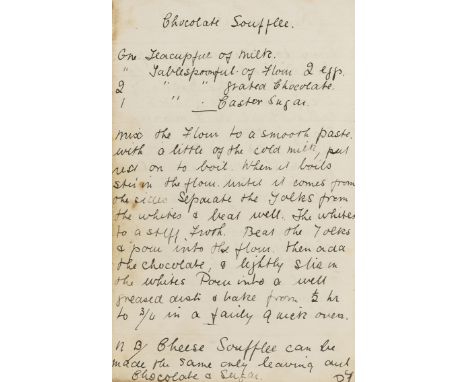 Chocolate Soufflee.
One Teacupful of Milk.
" Tablespoonful of Flour 2 eggs.
2 " " grated Chocolate.
1 " . Castor Sugar.
Mix the Flour to a smooth paste
with a little of the cold milk, put
rest on to boil. When it boils
stir in the flour until it comes from
the sides Separate the Yolks from
the whites & beat well. The whites
to a stiff Froth. Beat the Yolks
& pour into the flour. then add
the chocolate, & lightly stir in
the whites Pour into a well
greased dish & bake from ½ hr
to 3/4 in a fairly quick oven.
N B/ Cheese Soufflee can be
made the same only leaving out
Chocolate & Sugar.